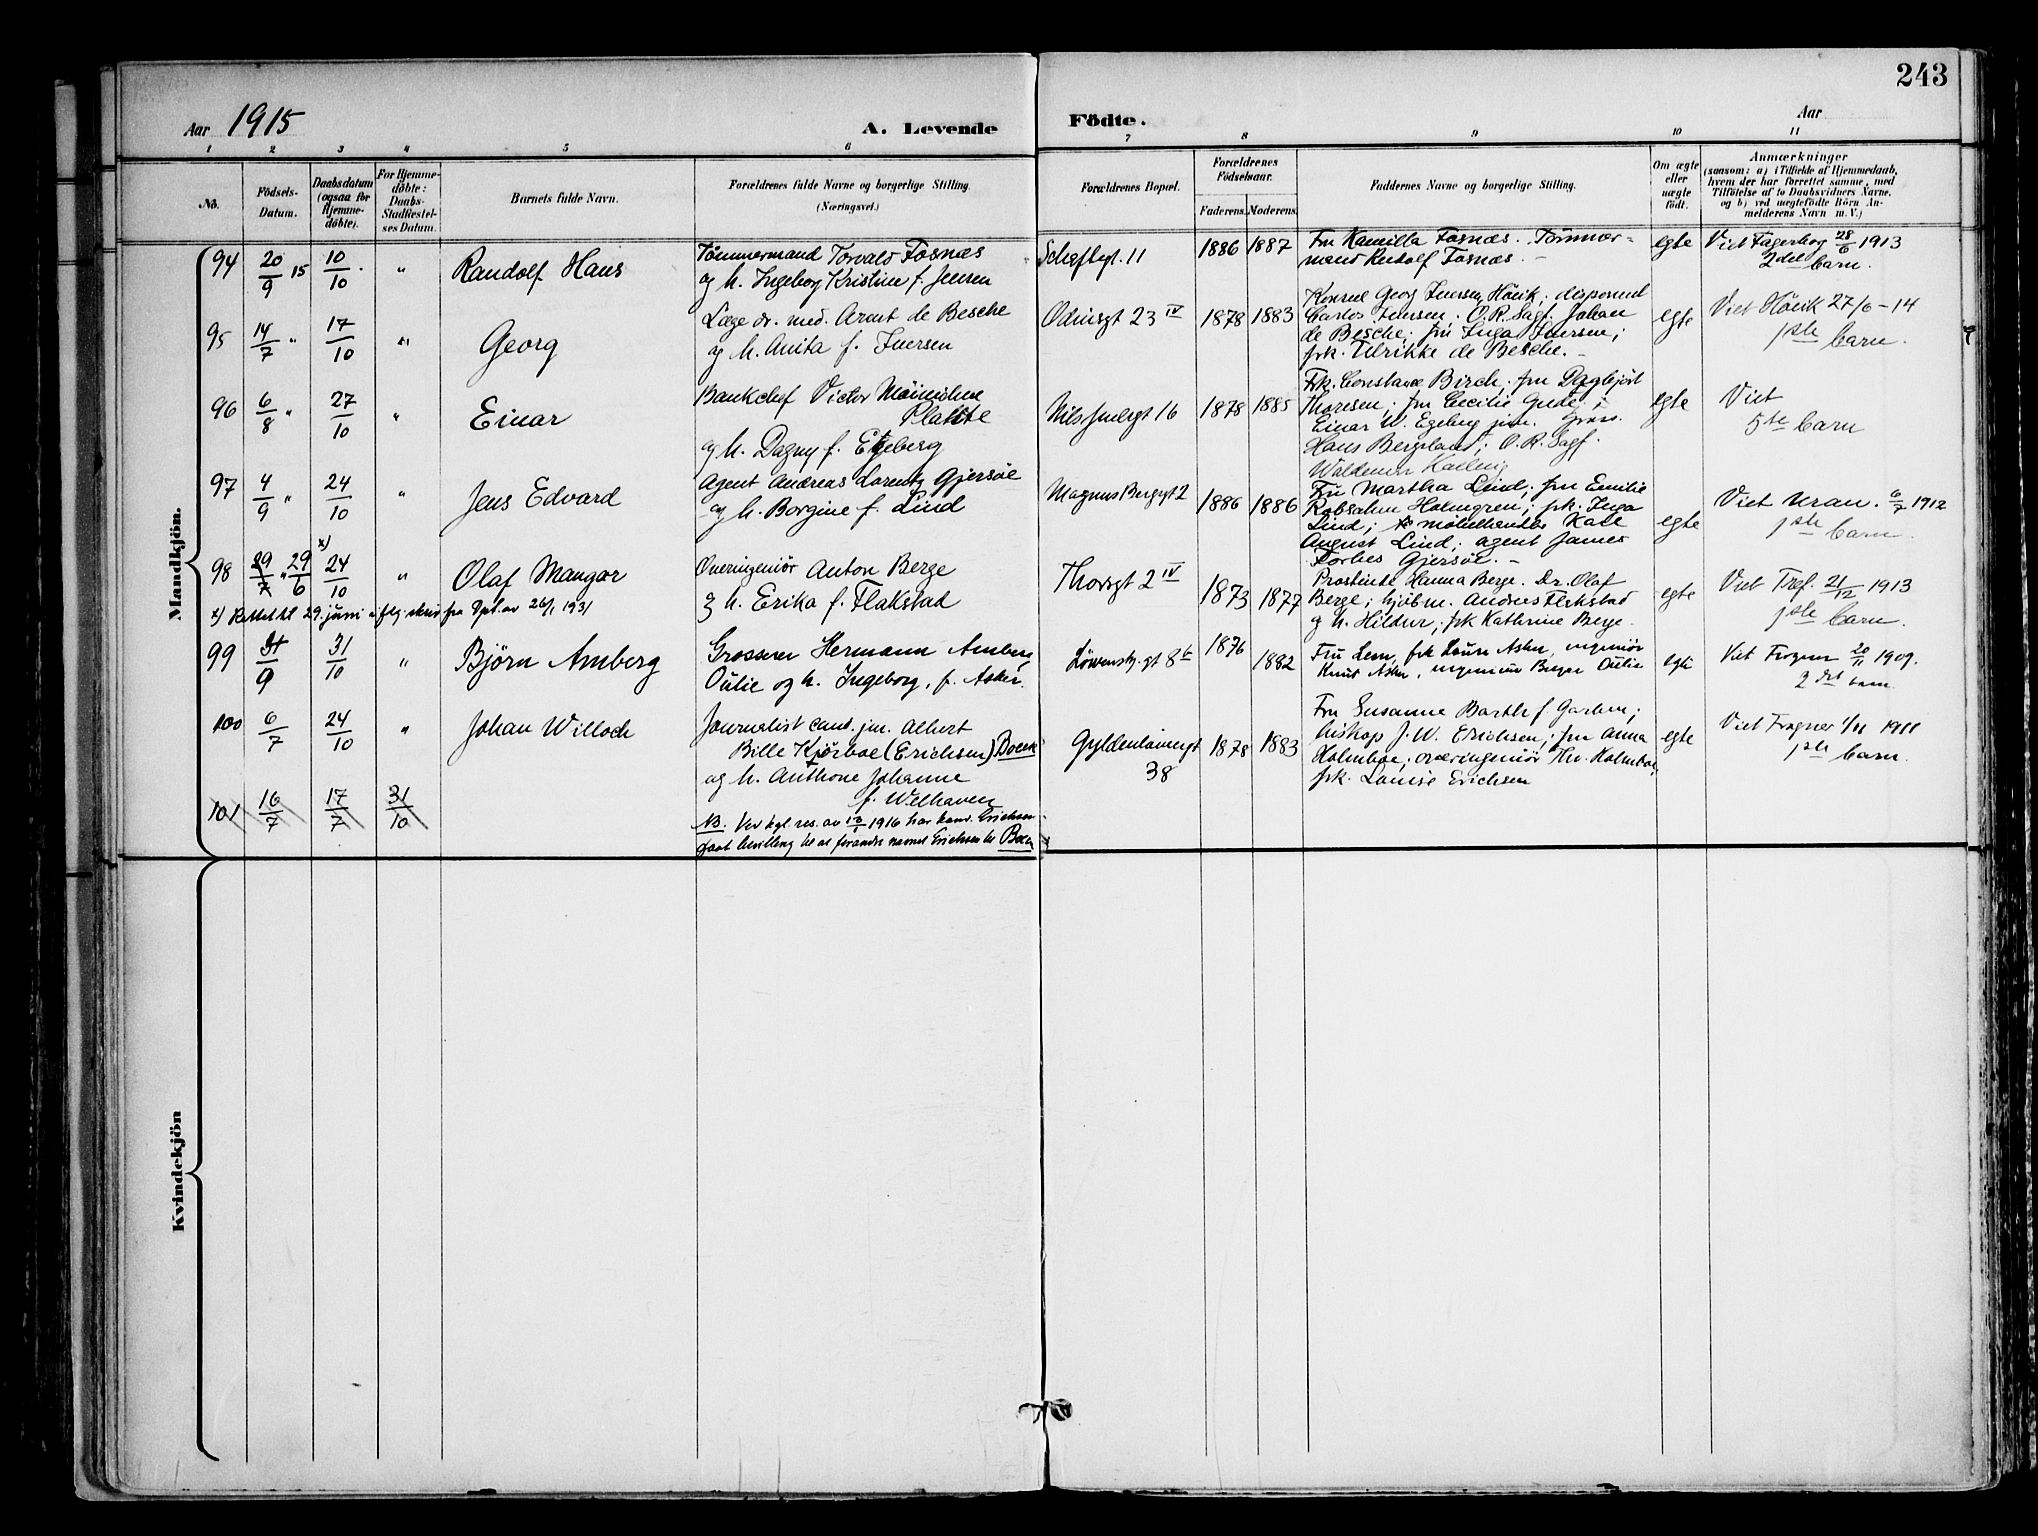 243
Aar 1915
A. Levende
Födte.
Aar
1 2 3 4 5 6 7 8 9 10 11
No.
Födsels-
Datum.
Daabsdatum
(ogsaa for
Hjemme-
döbte).
For Hjemme-
döbte:
Daabs-
Stadfæstel-
ses Datum.
Barnets fulde Navn.
Forældrenes fulde Navne og borgerlige Stilling.
(Næringsvei.)
Forældrenes Bopæl.
Forældrenes
Födselsaar.
Faderens. Moderens.
Faddernes Navne og borgerlige Stilling.
Om ægte
eller
uægte
födt.
Anmærkninger
(saasom: a) i Tilfælde af Hjemmedaab,
hvem der har forrettet samme, med
Tilföielse af to Daabsvidners Navne,
og b) ved uægtefödte Börn An-
melderens Navn m. V.)
Mandkjön.
94 20/9 15 10/10 " Randolf Hans
Tømmermand Torvald Fosnæs
og h. Ingeborg Kristine f. Jensen
Schæftsgt. 11 1886 1887
Fru Kamilla Fosnæs. Tømmer-
mand Rudolf Fosnæs. –
egte
Viet Fagerborg 28/6 1913
2det barn.
95 14/7 " 17/10 " Georg
Læge dr. med. Arent de Besche
og h. Anita f. Iversen
Odinsgt 23 IV 1878 1883
Konsul Georg Iversen, Hövik; disponent
Carlos Iversen. O.R.Sagf. Johan
de Besche; fru Inga Iversen;
frk. Ulrikke de Besche. –
egte
Viet Hövik 27/6 – 14
1ste barn.
96 6/8 " 27/10 " Einar
Bankchef Victor
Plahte
og h. Dagny f. Egeberg
Nils Juelsgt 16 1878 1885
Frk. Constance Birch; fru Dagbjört
Thoresen; fru Cecilie Gude;
Einar W. Egeberg jun.
Hans Bergsland; O.R. Sagf.
egte
Viet
5te barn
97 4/9 " 24/10 " Jens Edvard
Agent Andreas Lorentz Gjersøe
og h. Borgine f. Lind
Magnus Bergsgt 2 1886 1886
Fru Martha Lind; fru Emilie
Robsahm Holmgren; frk. Inga
Lind; møbelhandler Karl
August Lind; agent James
Forbes Gjersøe. –
egte
Viet Uran. 6/7 1912
1ste barn.
98 29/7 " 29/6 x) 24/10 " Olaf Mangor
Overingeniör Anton Berge
og h. Erika f. Flakstad
Thorsgt 2 IV 1873 1877
Prostinde Hanna Berge. Dr. Olaf
Berge; kjöbm. Andreas Flakstad
og h. Hildur; frk Kathrine Berge.
egte
Viet Tref. 21/12 1913
1ste barn.
x) Rettet til 29. juni iflg. skriv fra Dpt. av 26/1 1931
99 31/10 " Björn Amberg
Grosserer Hermann Amberg
Oulie og h. Ingeborg, f. Asker.
Løvenskj. gt 8b 1876 1882
Fru Lem, frk Laura Asker, ingeniör
Knut Asker, ingeniör Birger Oulie
egte
Viet Frogner 20/11 1909.
2det barn.
100 6/7 24/10 " Johan Willoch
Journalist cand. jur. Albert
Bille Kjørboe (Erichsen) Boeck
og h. Anthone Johanne
f. Welhaven
NB. Ved kgl. res. av 1916 har hand. Erichsen
faat bevilling til at forandre navnet Erichsen til Boeck
Gyldenløvesgt
38
1878 1883
Fru Susanne Barth f Garben;
biskop J. W. Erichsen; fru Anna
Holmboe; overingeniör Thv. Holmboe;
frk. Louise Erichsen
egte
Viet Frogner 1/11 1911
1ste barn.
101 16/7 17/7 31/10
Kvindekjön